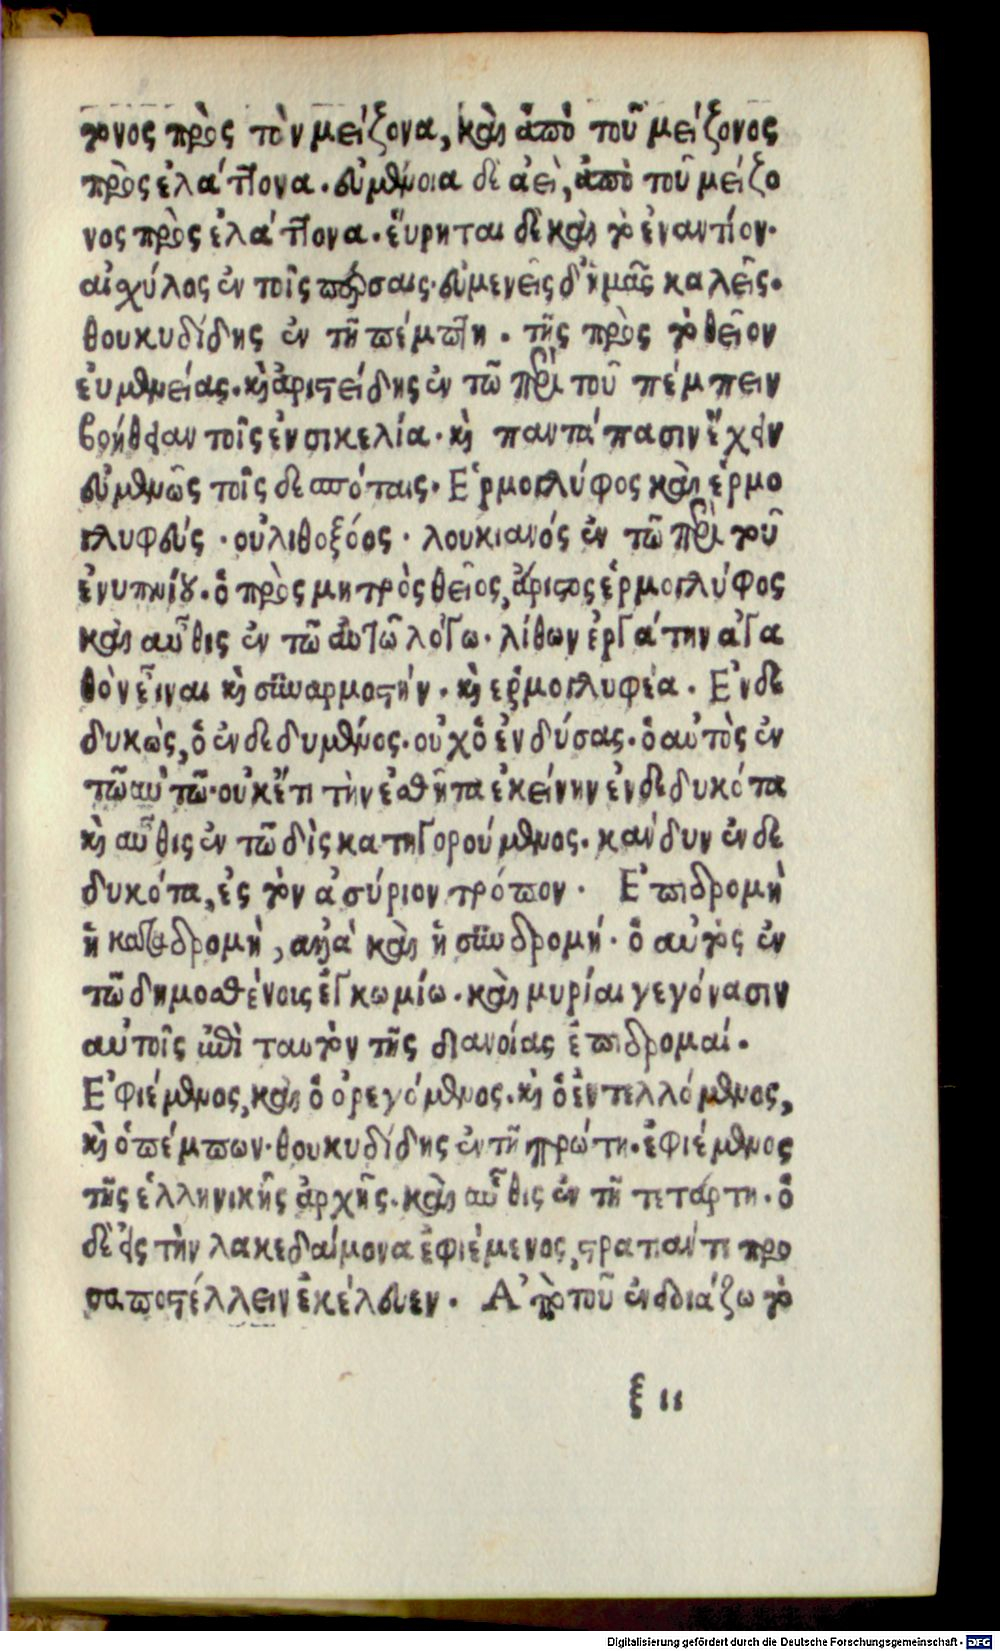 τονος πρὸς τὸν μείζονα, καὶ ἀπὸ τοῦ μείζονος
πρὸς ἐλάττονα. εὐμένοια δὲ ἀεὶ, ἀπὸ τοῦ μείζο
νος πρὸς ἐλάττονα. ἕυρηται δὲ καὶ τὸ ἐναντίον.
αἰσχύλος ἐν τοῖς πέρσαις. εὐμενεῖς δ' ἡμᾶς καλεῖς.
θουκυδίδης ἐν τῇ πέμπτη. τῆς πρὸς τὸ θεῖον
ἐυμενείας. καὶ ἀριστείδης ἐν τῶ περὶ τοῦ πέμπειν
βοήθειαν τοῖς ἐν σικελία. καὶ παντάπασιν ἔχειν
εὐμενῶς τοῖς δεσπόταις. Ἑρμογλύφος καὶ ἑρμο
γλυφεύς. οὐ λιθοξόος. λουκιανός ἐν τῶ περὶ τοῦ
ἐνυπνίου. ὁ πρὸς μητρὸς θεῖος, ἄριστος ἑρμογλύφος
καὶ αὖθις ἐν τῶ αὐτῶ λόγω. λίθων ἐργάτην ἀγα
θὸν εἶναι καὶ συναρμοστήν. καὶ ἑρμογλυφέα. Ἐνδε
δυκὼς, ὁ ἐνδεδυμένος. οὐχ ὁ ἐνδύσας. ὁ αὐτὸς ἐν
τῶ αὐτῶ. οὐκέτι τὴν ἐσθῆτα ἐκείνην ἐνδεδυκότα
καὶ αὖθις ἐν τῶ δὶς κατηγορούμενος. κανδυν ἐνδε
δυκότα, ἐς τὸν ἀσύριον τρόπον. Ἐπιδρομὴ
ἢ καταδρομὴ, ἀλλὰ καὶ ἡ συνδρομή. ὁ αὐτὸς ἐν
τῶ δημοσθένοις ἐγκωμίω. καὶ μυρίαι γεγόνασιν
αὐτοῖς ἐπὶ ταυτὸν τῆς διανοίας ἐπιδρομαί.
Ἐφιέμενος, καὶ ὁ ὀρεγόμενος. καὶ ὁ ἐντελλόμενος,
καὶ ὁ πέμπων. θουκυδίδης ἐν τῆ πρώτη. ἐφιέμενος
τῆς ἑλληνικῆς ἀρχῆς. καὶ αὖθις ἐν τῆ τετάρτη. ὁ
δὲ ἐς τὴν λακεδαίμονα ἐφιέμενος, στρατιάν τι προ
σαποστέλλειν ἐκέλευεν. Ἀπὸ τοῦ ἐνδοιάζω τὸ
ξ ιι
Digitalisierung gefördert durch die Deutsche Forschungsgemeinschaft - DFG